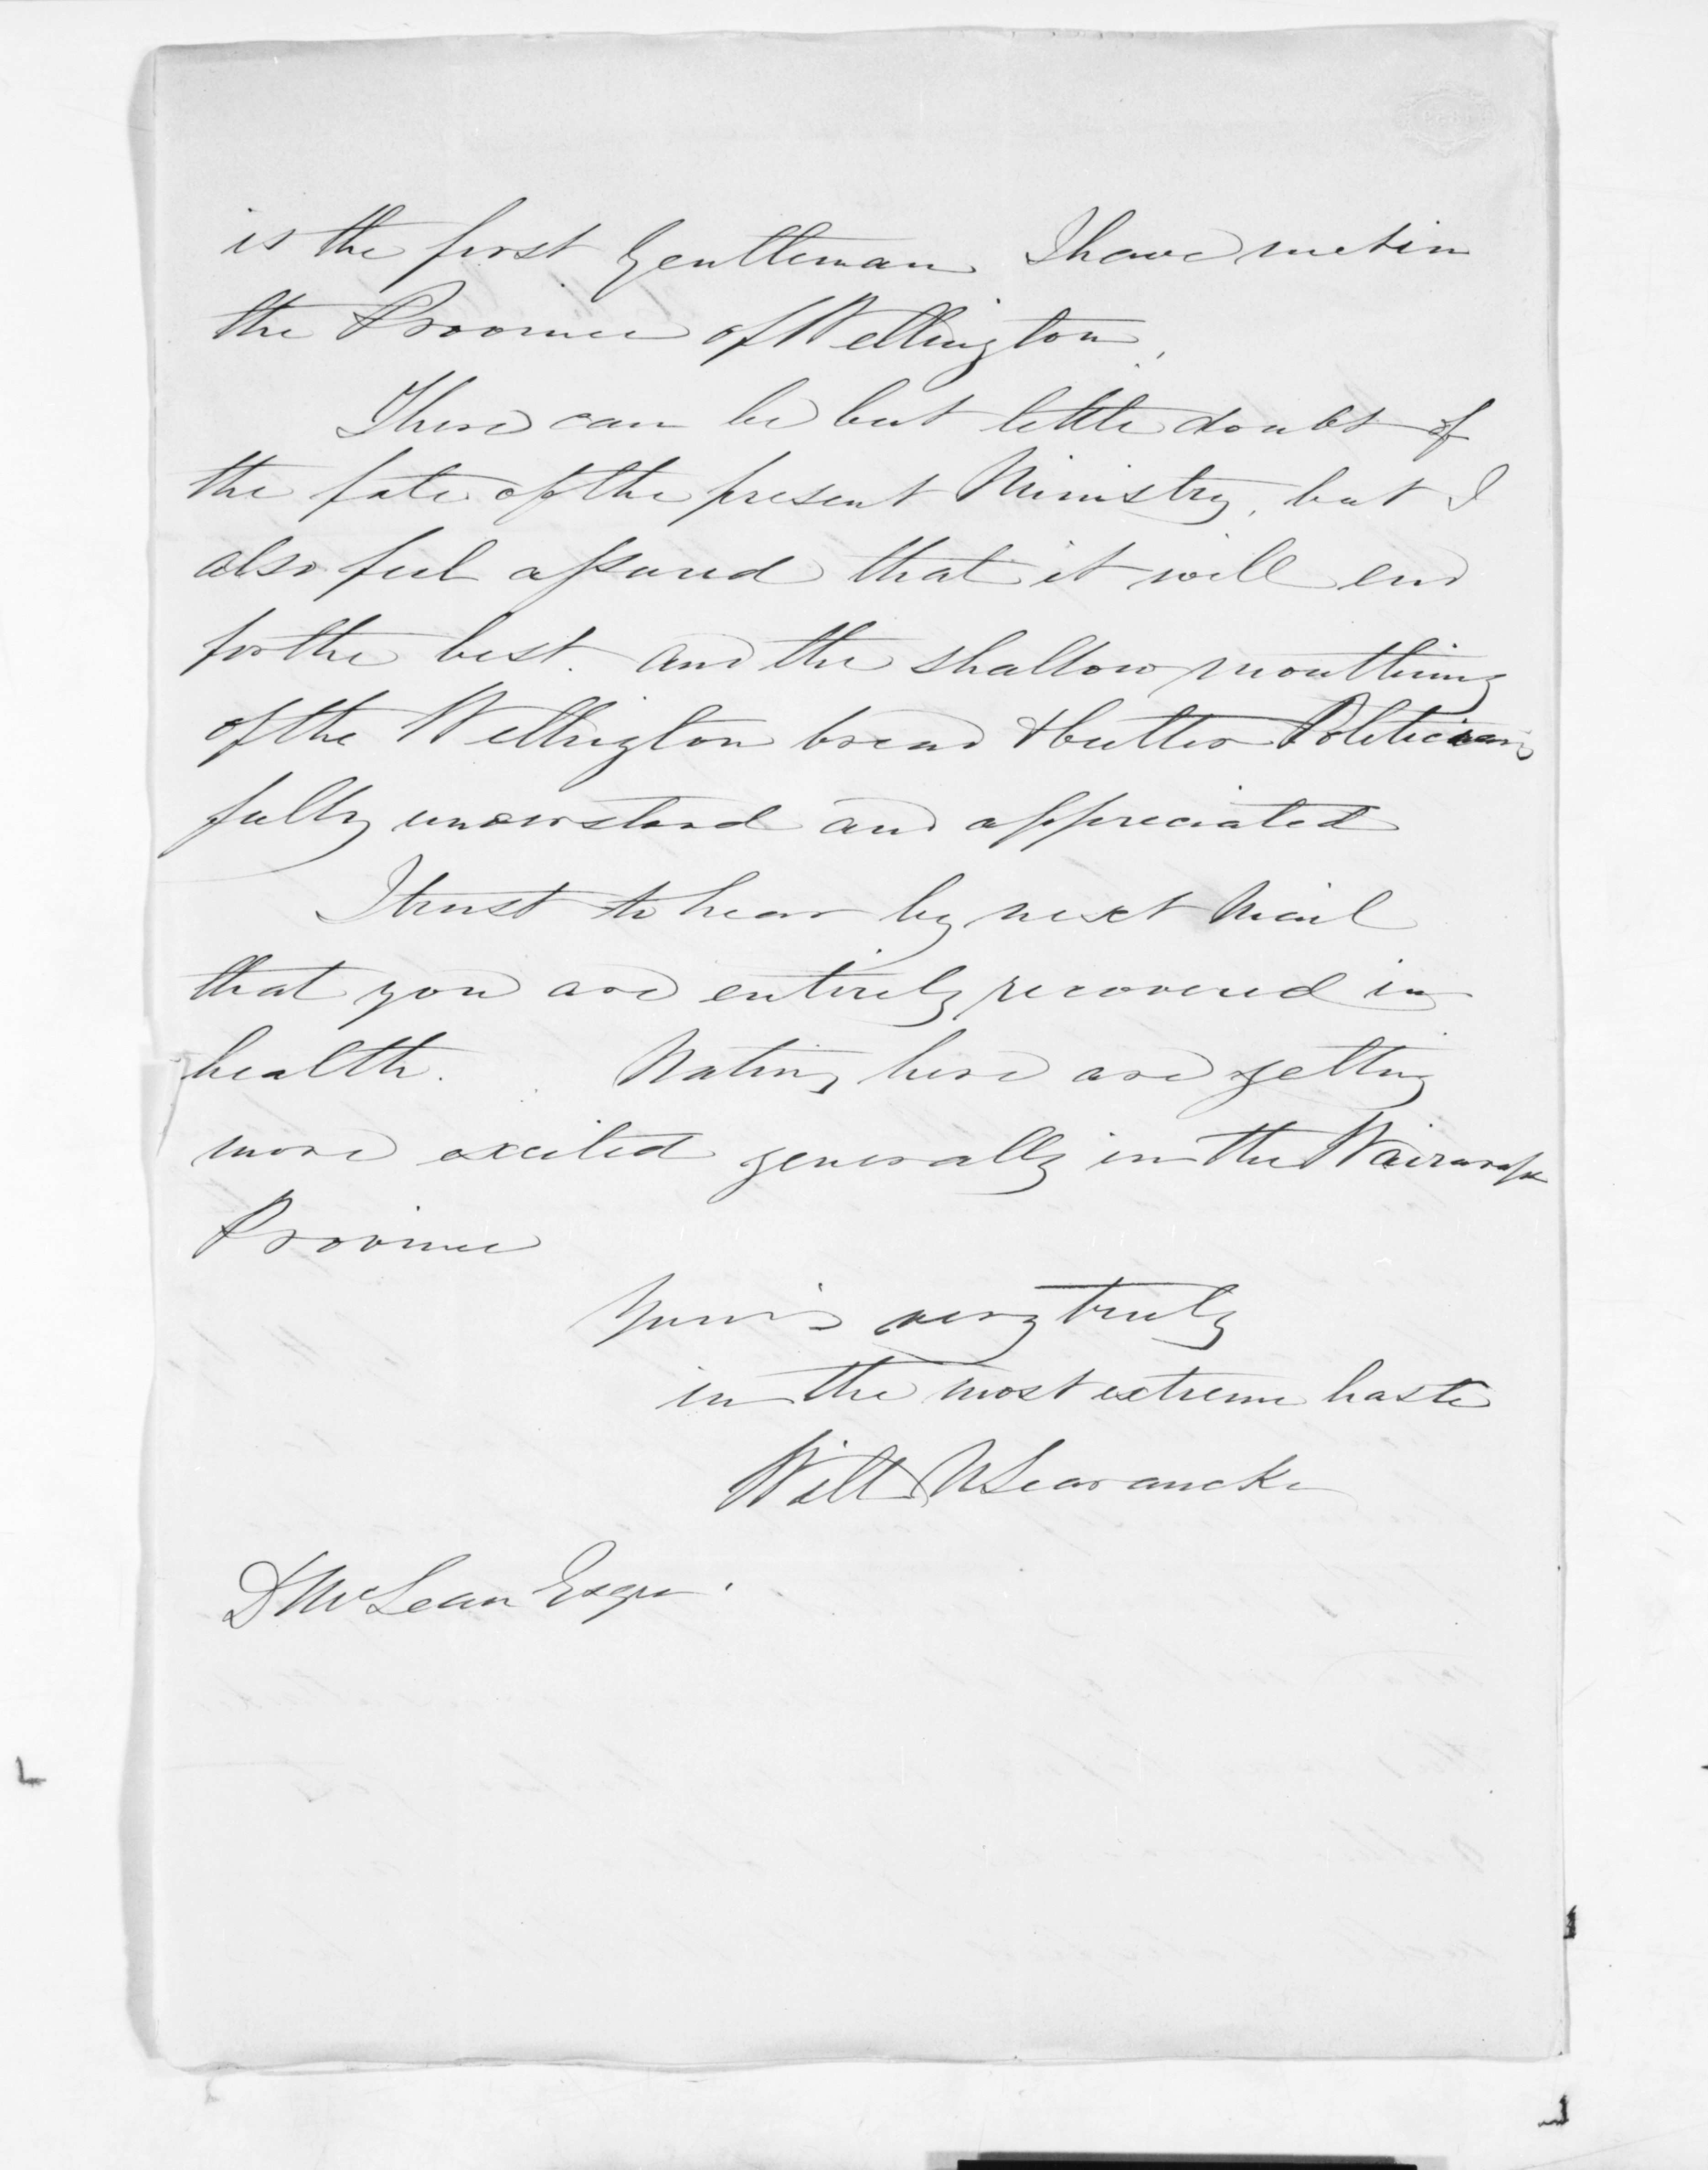 is the first Gentleman I have met in
the Province of Wellington,
There can be but little doubt of
the fate of the present Ministry, but I
also feel assured that it will end
for the best. and the shallow mouthing
of the Wellington bread & butter Politicians
fully understood and appreciated
I trust to hear by next Mail
that you are entirely recovered in
health. Natives here are getting
more excited generally in the Wairarapa
Province
Yours very truly
in the most extreme haste
Will N Searancke
D McLean Esqre.